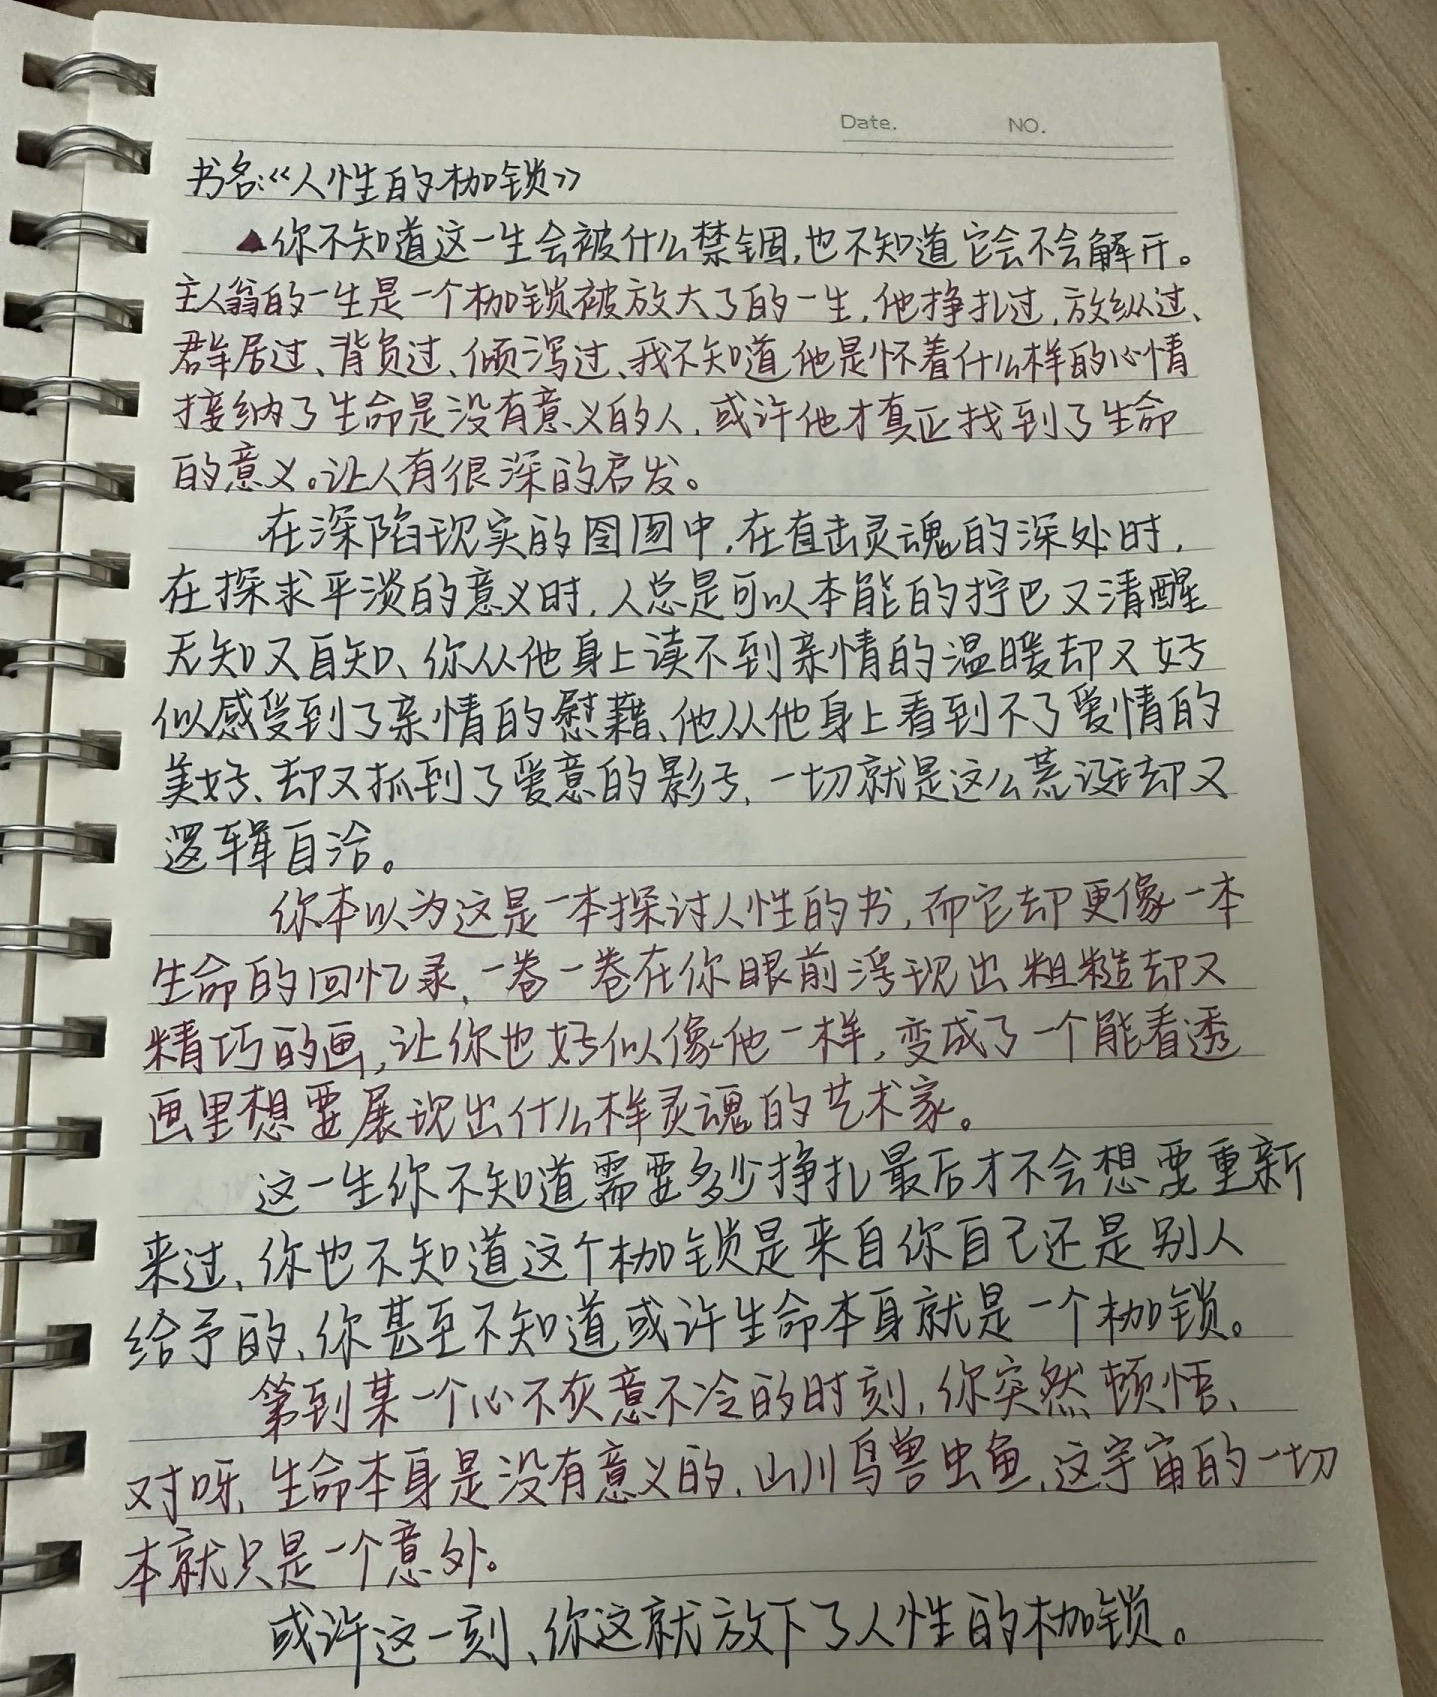 Date. NO.
书名:《人性的枷锁》
▲你不知道这一生会被什么禁锢,也不知道它会不会解开。
主人翁的一生是一个枷锁被放大了的一生,他挣扎过,放纵过、
群居过、背负过、倾泻过、我不知道他是怀着什么样的心情
接纳了生命是没有意义的人,或许他才真正找到了生命
的意义。让人有很深的启发。
在深陷现实的囹圄中,在直击灵魂的深处时,
在探求平淡的意义时,人总是可以本能的拧巴又清醒
无知又自知、你从他身上读不到亲情的温暖却又好
似感受到了亲情的慰藉、他从他身上看到不了爱情的
美好、却又抓到了爱意的影子,一切就是这么荒诞却又
逻辑自洽。
你本以为这是一本探讨人性的书,而它却更像一本
生命的回忆录,一卷一卷在你眼前浮现出粗糙却又
精巧的画,让你也好似像他一样,变成了一个能看透
画里想要展现出什么样灵魂的艺术家。
这一生你不知道需要多少挣扎最后才不会想要重新
来过、你也不知道这个枷锁是来自你自己还是别人
给予的、你甚至不知道或许生命本身就是一个枷锁。
第到某一个心不灰意不冷的时刻,你突然顿悟、
对呀、生命本身是没有意义的,山川鸟兽虫鱼、这宇宙的一切
本就只是一个意外。
或许这一刻、你这就放下了人性的枷锁。